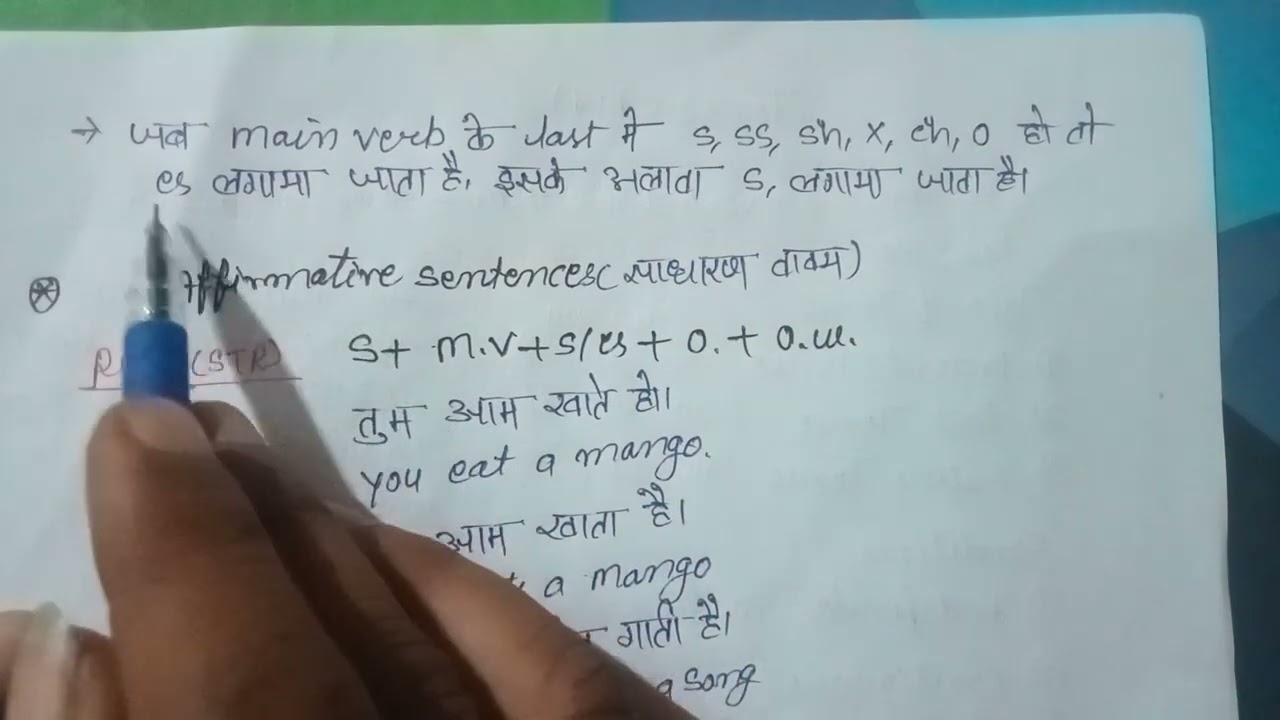 → जब main verb के last में s, ss, sh, x, ch, o हो तो
es लगाया जाता है, इसके अलावा s, लगाया जाता है।
Affirmative sentences (साधारण वाक्य)
(STR) S + m.v + s/es + o. + o.w.
तुम आम खाते हो।
you eat a mango.
आम खाता है।
a mango
गाती है।
a song